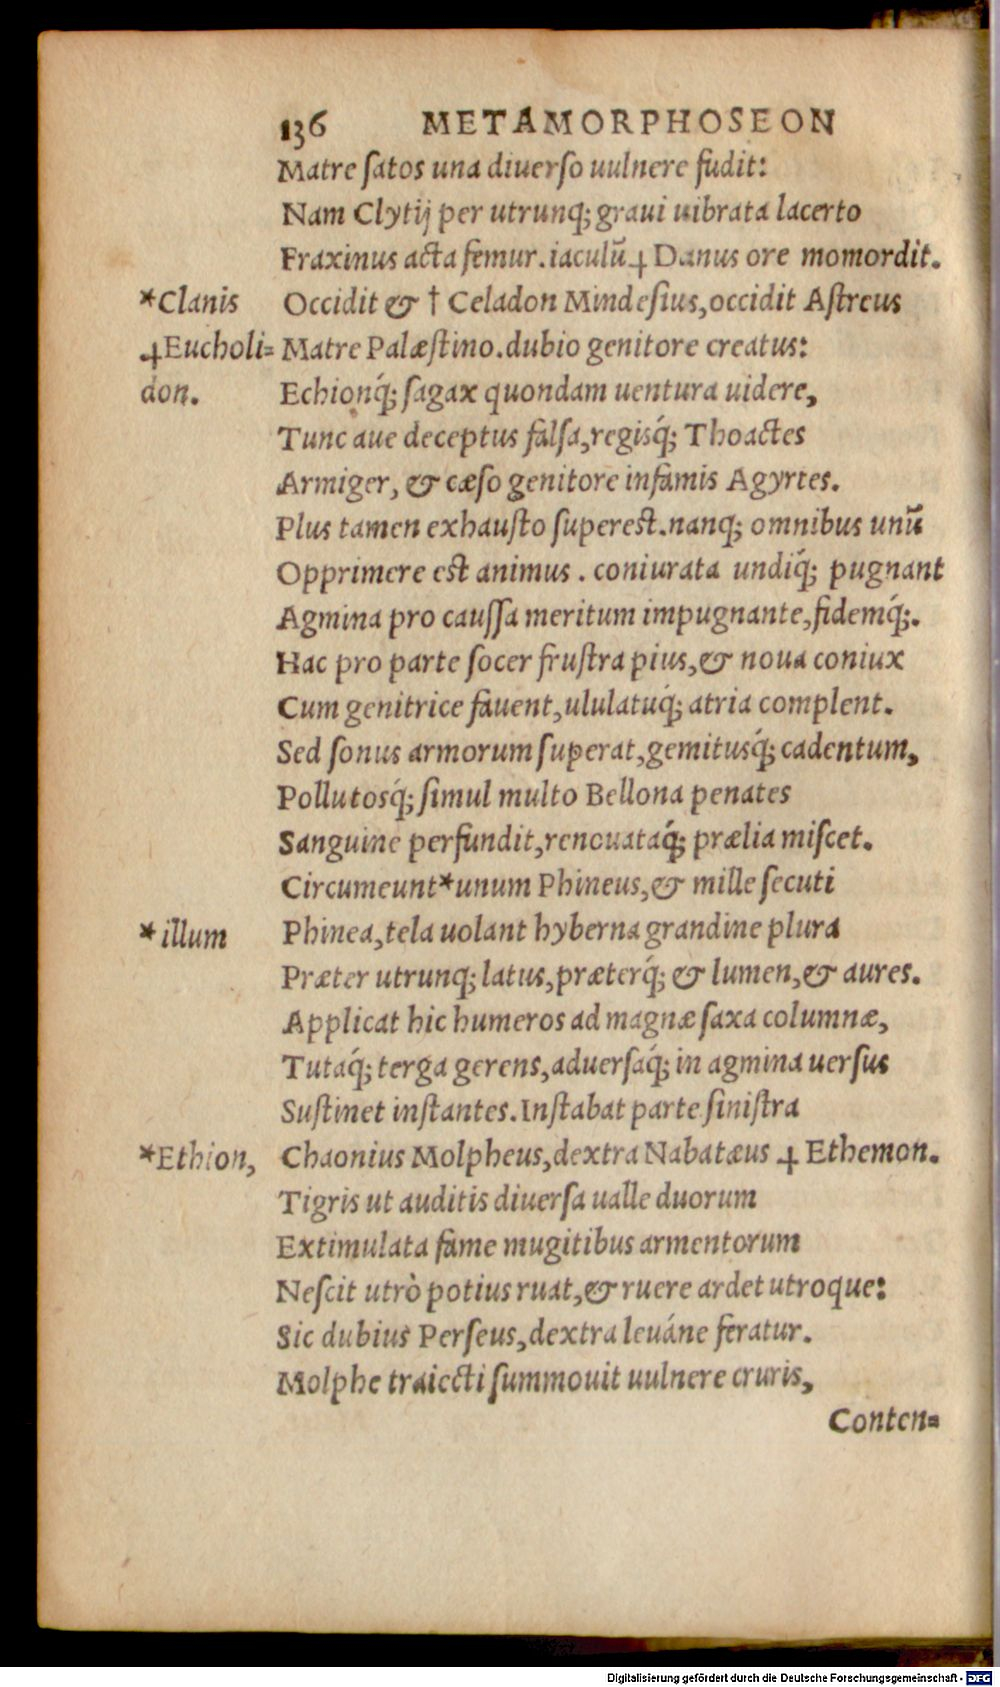 136 METAMORPHOSEON
Matre ſatos una diuerſo uulnere fudit:
Nam Clytij per utrunq; graui uibrata lacerto
Fraxinus acta femur.iaculū ⟊ Danus ore momordit.
*Clanis Occidit & † Celadon Mindeſius,occidit Aſtreus
⟊Eucholi= Matre Palæſtino.dubio genitore creatus:
don. Echionq́; ſagax quondam uentura uidere,
Tunc aue deceptus falſa,regisq́; Thoactes
Armiger, & cæſo genitore infamis Agyrtes.
Plus tamen exhauſto ſupereſt.nanq; omnibus unū
Opprimere eſt animus. coniurata undiq́; pugnant
Agmina pro cauſſa meritum impugnante,fidemq́;.
Hac pro parte ſocer fruſtra pius,& noua coniux
Cum genitrice fauent,ululatuq́; atria complent.
Sed ſonus armorum ſuperat,gemitusq́; cadentum,
Pollutosq́; ſimul multo Bellona penates
Sanguine perfundit,renouataq́; prælia miſcet.
Circumeunt*unum Phineus,& mille ſecuti
*illum Phinea,tela uolant hyberna grandine plura
Præter utrunq; latus,præterq́; & lumen,& aures.
Applicat hic humeros ad magnæ ſaxa columnæ,
Tutaq́; terga gerens,aduerſaq́; in agmina uerſus
Suſtinet inſtantes.Inſtabat parte ſiniſtra
*Ethion, Chaonius Molpheus,dextra Nabatæus ⟊ Ethemon.
Tigris ut auditis diuerſa ualle duorum
Extimulata fame mugitibus armentorum
Neſcit utrò potius ruat,& ruere ardet utroque:
Sic dubius Perſeus,dextra leuáne feratur.
Molphe traiecti ſummouit uulnere cruris,
Conten=
Digitalisierung gefördert durch die Deutsche Forschungsgemeinschaft - DFG